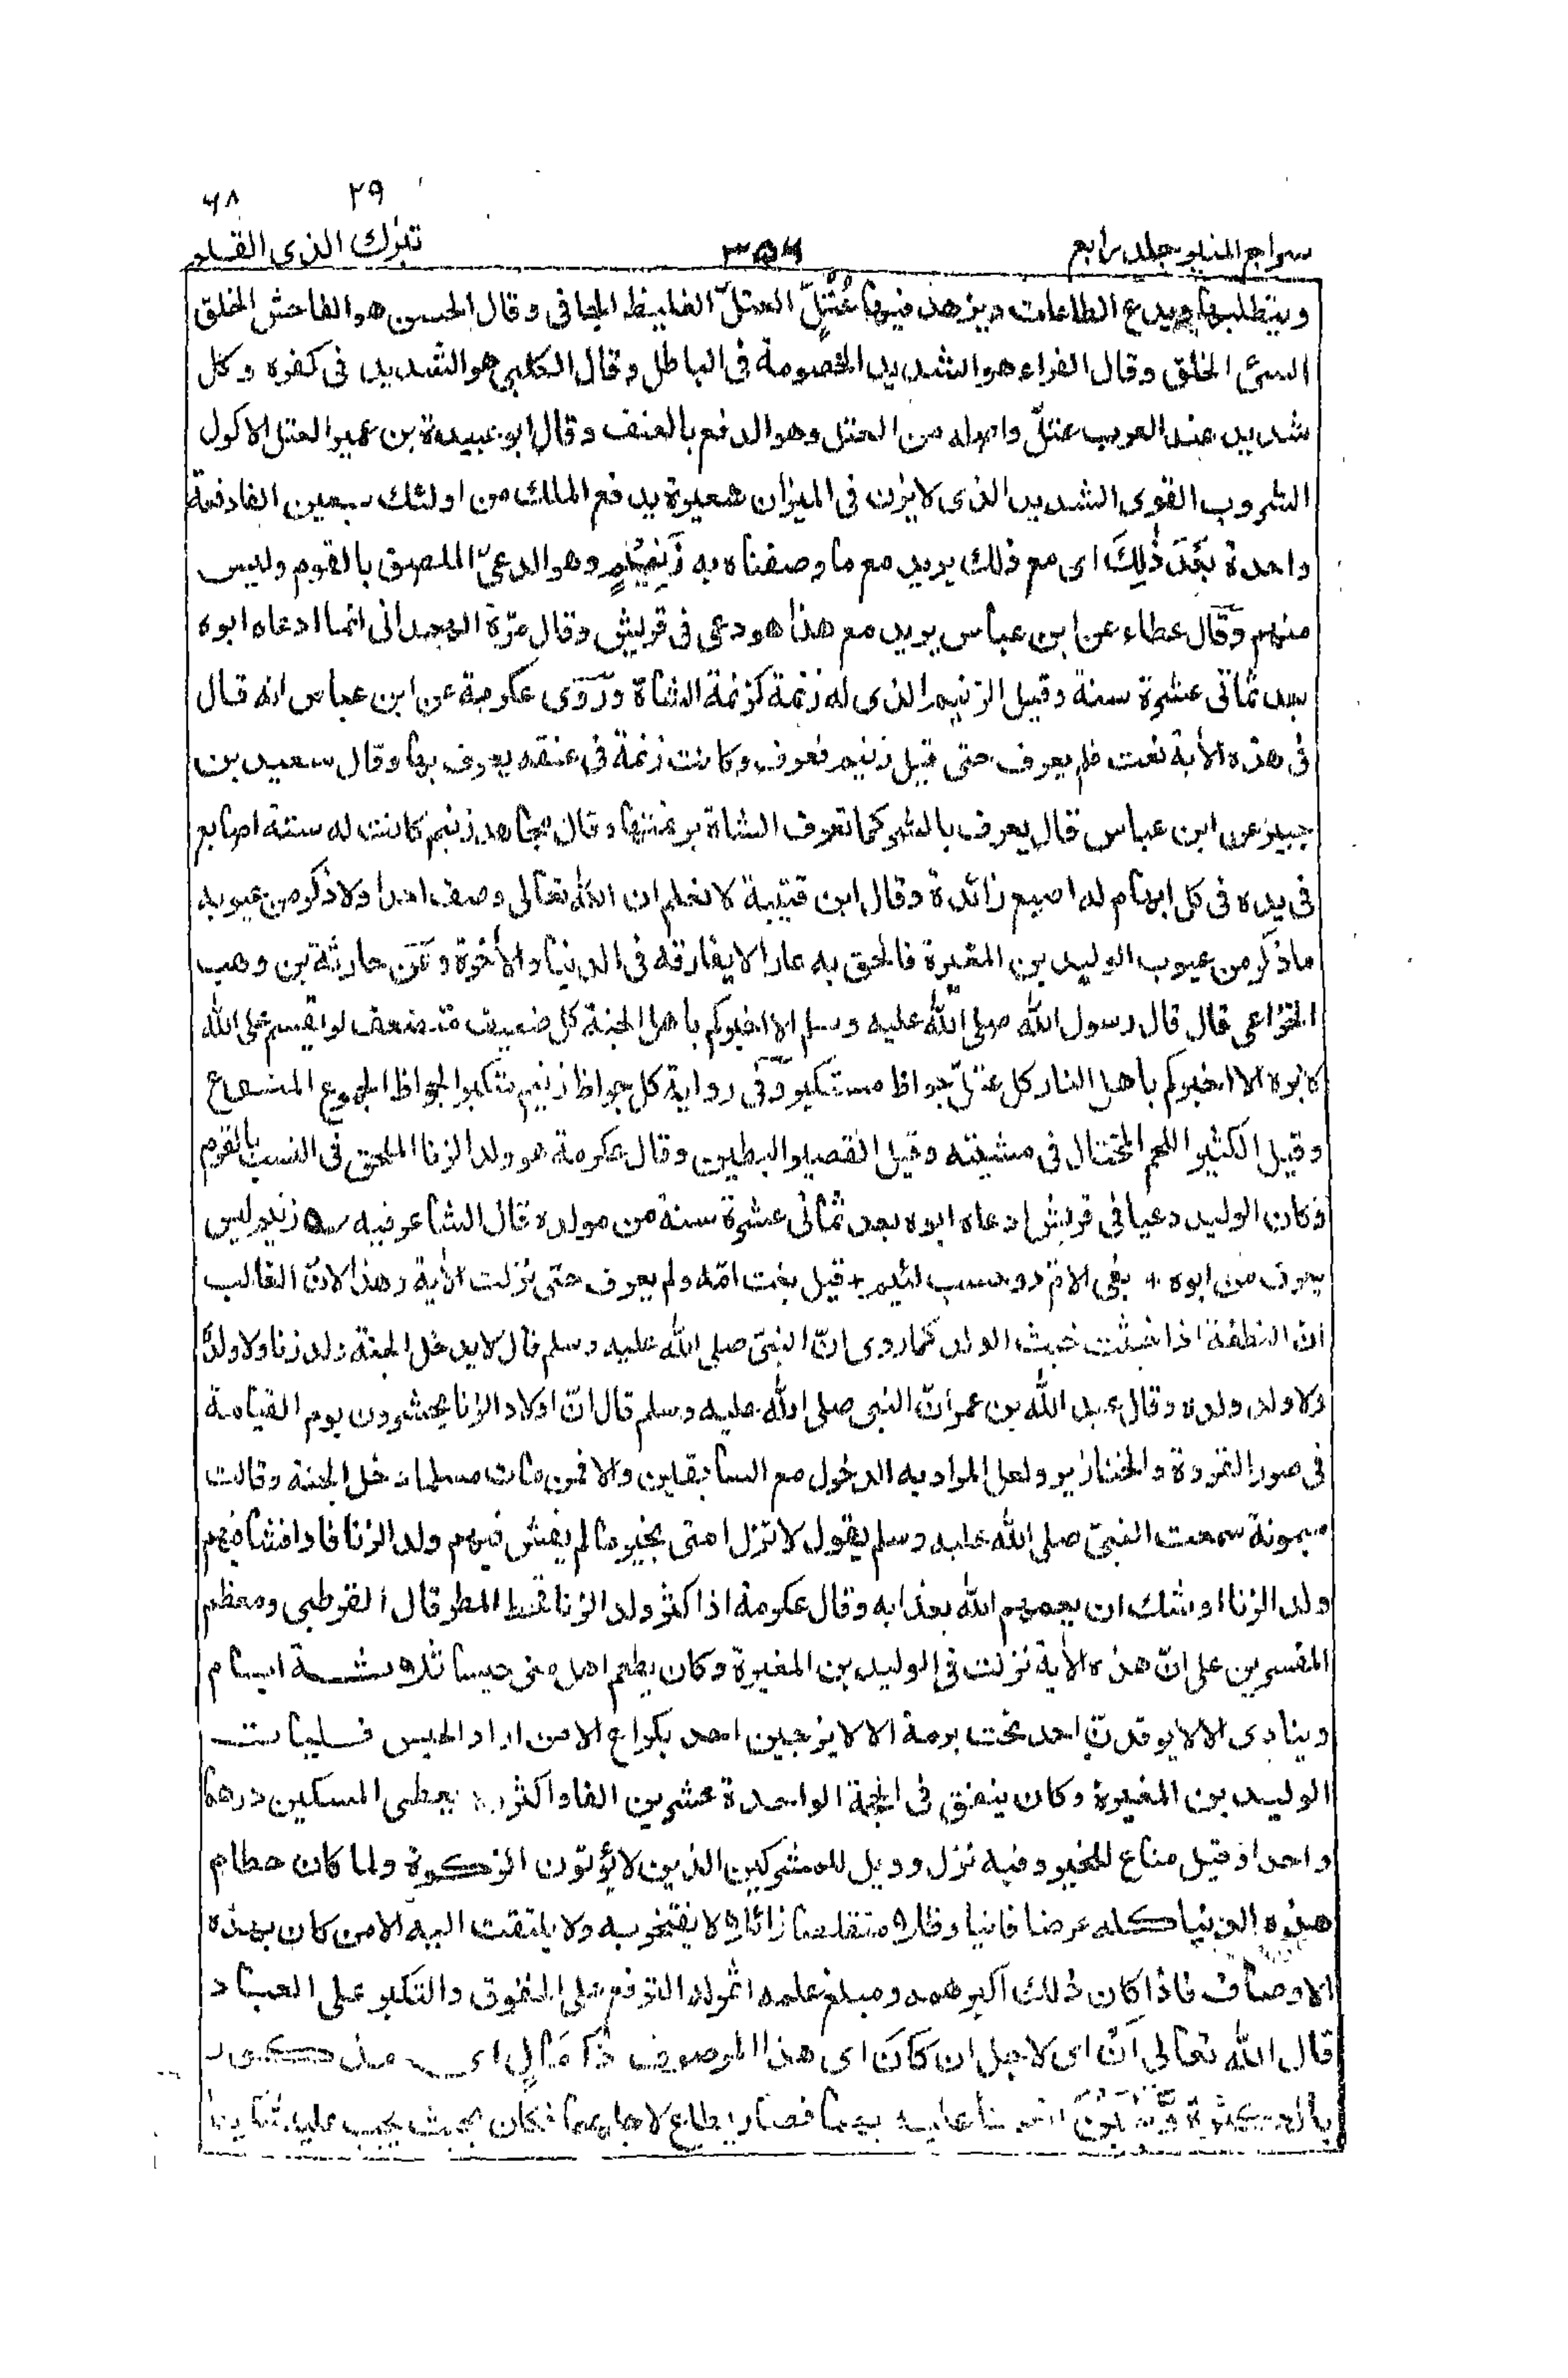 ٢٩ ٦٨
سراج المنير جلد رابع ٣٥٦ تبٰرك الذى القلم
ويتطلبها ويدع الطاعات ويزهد فيها عُتُلٍّ العتلّ الغليظ الجافى وقال الحسن هو الفاحش الخلق
السىٔ الخلق وقال الفراء هو الشديد الخصومة فى الباطل وقال الكلبى هو الشديد فى كفره وكل
شديد عند العرب عتلّ واصله من العتل وهو الدفع بالعنف وقال ابو عبيدة بن عمير العتل الاكول
الشروب القوى الشديد الذى لا يزن فى الميزان شعيرة يدفع الملك من اولئك سبعين الفا دفعة
واحدة بَعْدَ ذٰلِكَ اى مع ذلك يريد مع ما وصفناه به زَنِيْمٍ وهو الدعىّ الملصق بالقوم وليس
منهم وقال عطاء عن ابن عباس يريد مع هذا هو دعى فى قريش وقال مرّة الهمدانى انما ادعاه ابوه
بعد ثمانى عشرة سنة وقيل الزنيم الذى له زنمة كزنمة الشاة وروى عكرمة عن ابن عباس انه قال
فى هذه الأية نعت فلم يعرف حتى قيل زنيم فعرف وكانت زنمة فى عنقه يعرف بها وقال سعيد بن
جبير عن ابن عباس قال يعرف بالشر كما تعرف الشاة بزنمتها وقال مجاهد زنيم كانت له ستة اصابع
فى يده فى كل ابهام له اصبع زائدة وقال ابن قتيبة لا نعلم ان الله تعالى وصف احدا ولا ذكر من عيوبه
ما ذكر من عيوب الوليد بن المغيرة فالحق به عارا لا يفارقه فى الدنيا والأخرة وعن حارثة بن وهب
الخزاعى قال قال رسول الله صلى الله عليه وسلم الا اخبركم باهل الجنة كل ضعيف متضعف لو اقسم على الله
لابره الا اخبركم باهل النار كل عتلّ جواظ مستكبر وفى رواية كل جواظ زنيم متكبر الجواظ الجموع المنوع
وقيل الكثير اللحم المختال فى مشيته وقيل القصير البطين وقال عكرمة هو ولد الزنا الملحق فى النسب بالقوم
وكان الوليد دعيا فى قريش ادعاه ابوه بعد ثمانى عشرة سنة من مولده قال الشاعر فيه ؎ زنيم ليس
يعرف من ابوه + بغى الامّ ذو حسب لئيم + قيل بغت امّه ولم يعرف حتى نزلت الأية وهذا لانّ الغالب
انّ النطفة اذا خبثت خبث الولد كما روى انّ النبىّ صلى الله عليه وسلم قال لا يدخل الجنة ولد زنا ولا ولدُهٗ
ولا ولد ولده وقال عبد الله بن عمر انّ النبى صلى الله عليه وسلم قال انّ اولاد الزنا يحشرون يوم القيامة
فى صور القردة والخنازير ولعل المراد به الدخول مع السابقين والا فمن مات مسلما دخل الجنة وقالت
ميمونة سمعت النبىّ صلى الله عليه وسلم يقول لا تزل امتى بخير ما لم يفش فيهم ولد الزنا فاذا فشا فيهم
ولد الزنا اوشك ان يعمهم الله بعذابه وقال عكرمة اذا كثر ولد الزنا قحط المطر قال القرطبى ومعظم
المفسرين على انّ هذه الأية نزلت فى الوليد بن المغيرة وكان يطعم اهل منى حيسا ثلاثة ايام
وينادى الا لا يوقدنّ احد تحت برمة الا لا يزجين احد بكراع الا من اراد الحيس فليات
الوليد بن المغيرة وكان ينفق فى الحجة الواحدة عشرين الفا واكثر ولا يعطى المسكين درهما
واحدا فقيل مناع للخير وفيه نزل وويل للمشركين الذين لا يؤتون الزكوة ولما كان حطام
هذه الدنيا كله عرضا فانيا وظلا متقلصا زائلا لا يفتخر به ولا يلتفت اليه الا من كان بهذه
الاوصاف فاذا كان ذلك اكبر همه ومبلغ علمه اثمر له الترفع على الحقوق والتكبر على العباد
قال الله تعالى اَنْ اى لاجل ان كَانَ اى هذا الموصوف ذَا مَالٍ اى مذكور
بالكثرة وَّبَنِيْنَ انعمنا عليه بهما فصار يطاع لاجلهما فكان بحيث يجب عليه